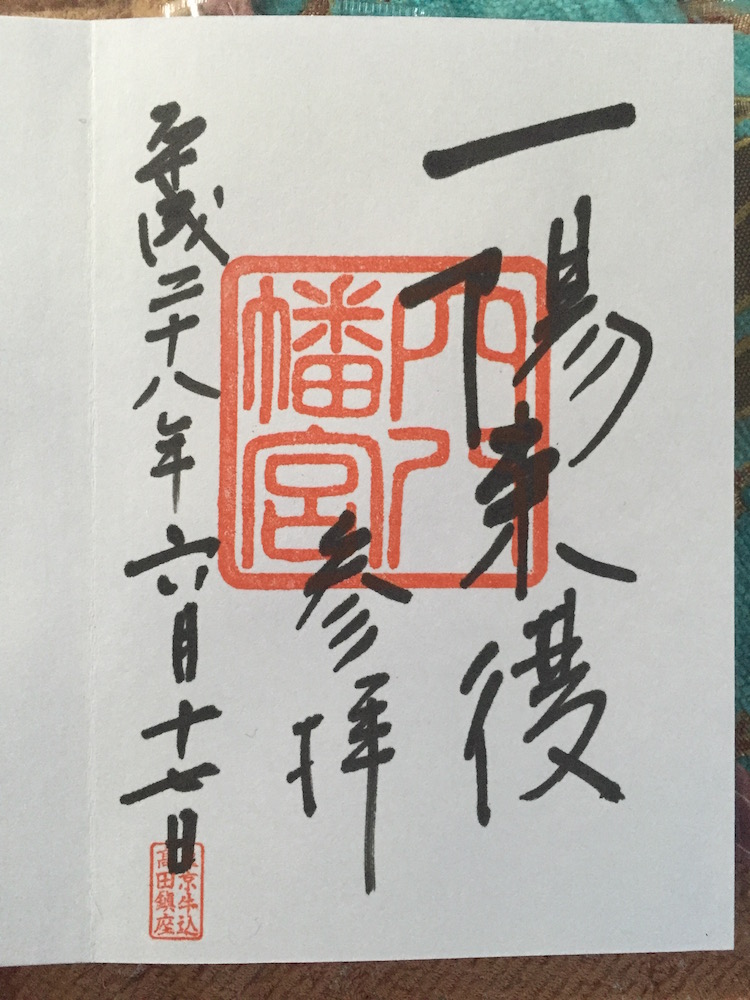 一陽来復
参拝
平成二十八年六月十七日
穴八
幡宮
東京牛込
高田鎮座